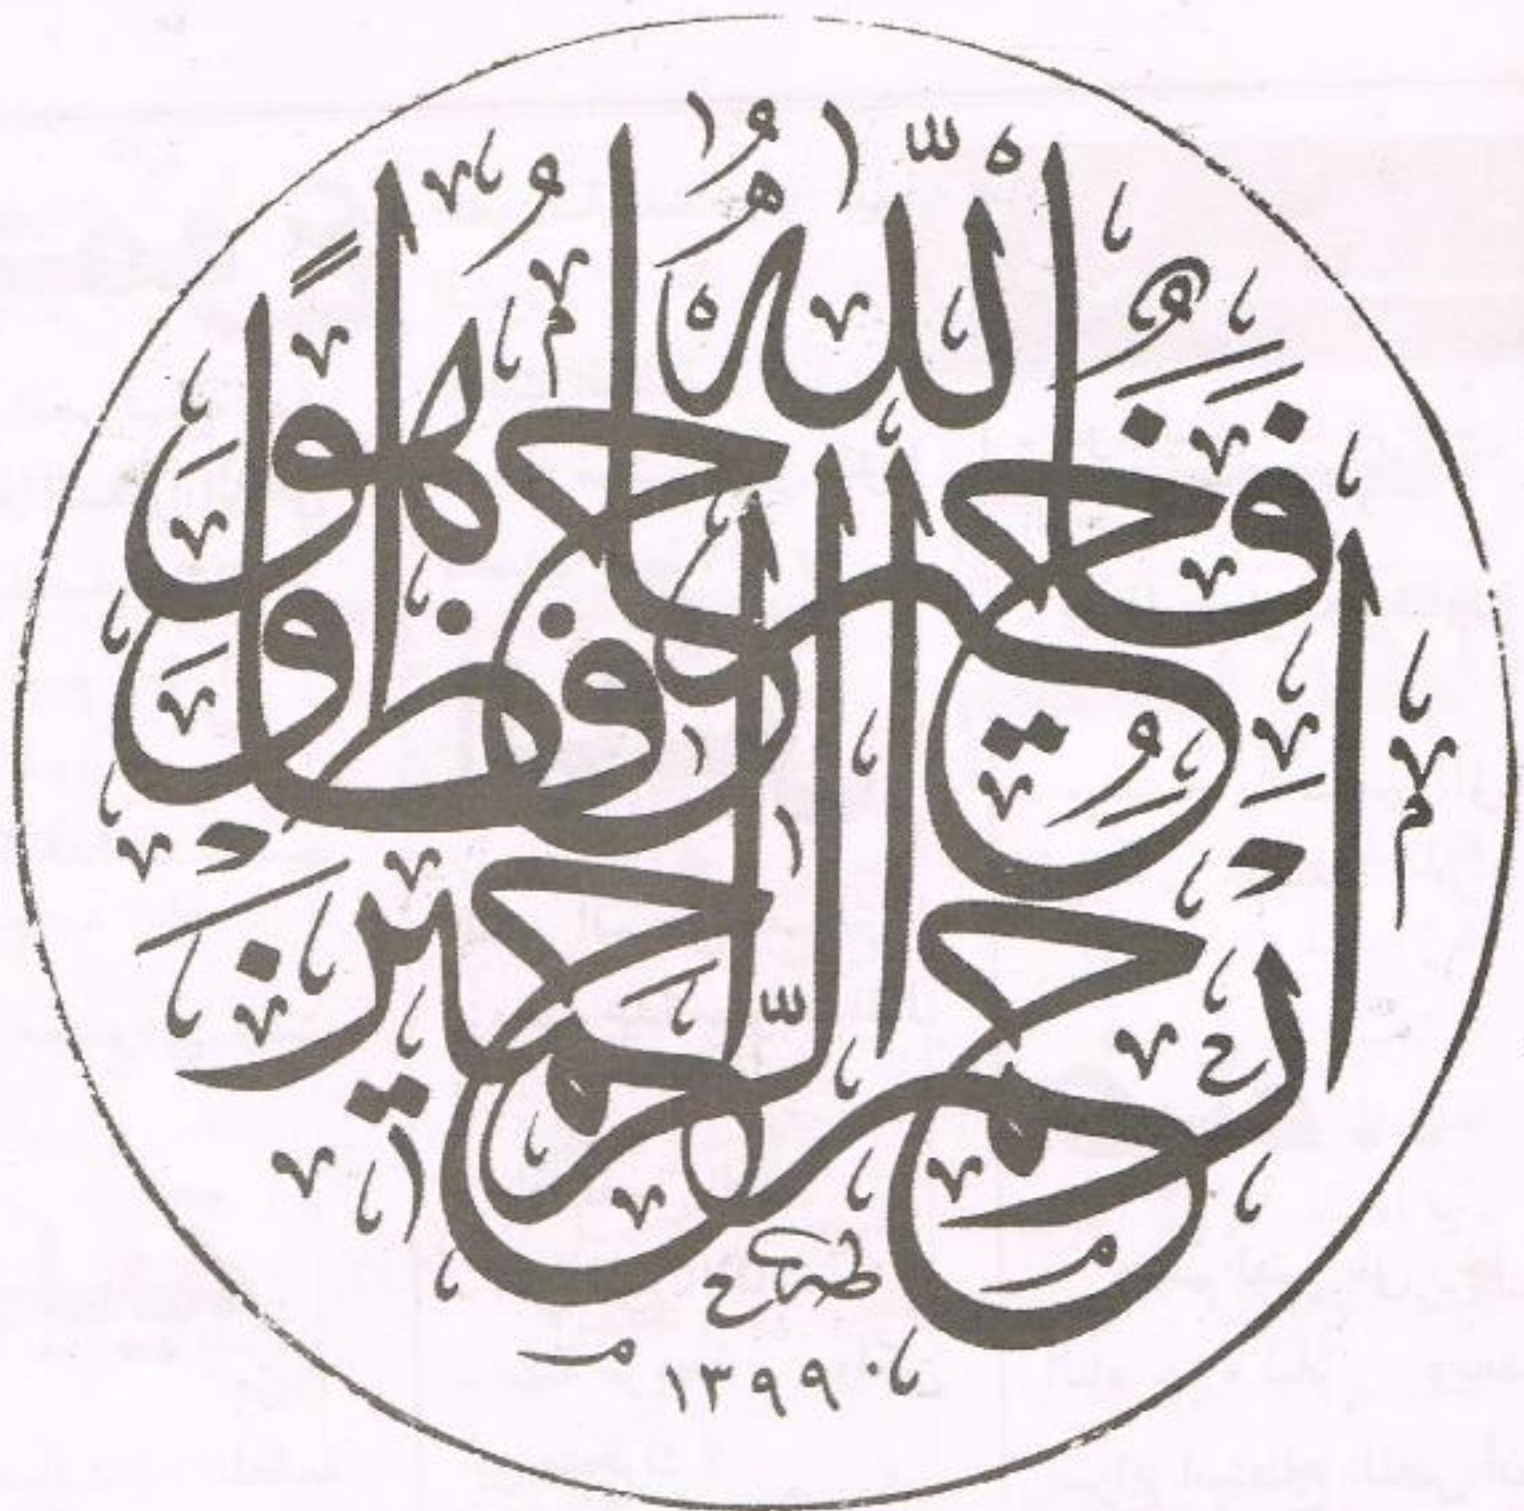 فَاللَّهُ خَيْرٌ حَافِظًا وَهُوَ أَرْحَمُ الرَّاحِمِينَ
١٣٩٩